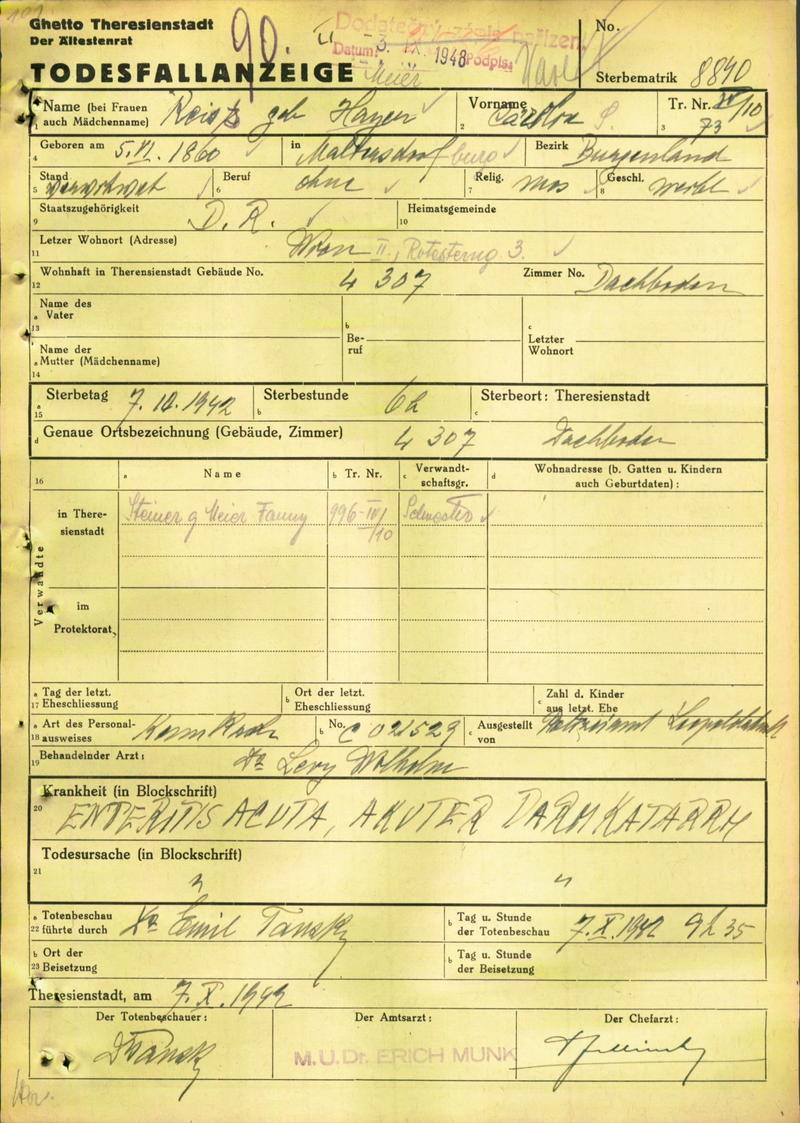 Ghetto Theresienstadt
Der Ältestenrat
TODESFALLANZEIGE
90.
Dodatečný zápis nařízen
Datum: -3. IX. 1948 Podpis:
Meier
No.
Sterbematrik 8890
Name (bei Frauen auch Mädchenname) geb
1
Vorname
2
Tr. Nr. IV/10
3 73
Geboren am 5.VI. 1860 in Mattersdorf burg Bezirk Burgenland
4
Stand verwitwet Beruf ohne Relig. mos Geschl. weibl
5 6 7 8
Staatszugehörigkeit D. R. Heimatsgemeinde
9 10
Letzer Wohnort (Adresse) Wien II., Rotesterng 3.
11
Wohnhaft in Therensienstadt Gebäude No. L 307 Zimmer No. Dachboden
12
Name des
a Vater
13
b Be-
ruf
c
Letzter
Wohnort
Name der
a Mutter (Mädchenname)
14
a Sterbetag 7. 10. 1942 Sterbestunde 6h Sterbeort: Theresienstadt
15 b c
d Genaue Ortsbezeichnung (Gebäude, Zimmer) L 307 Dachboden
16 a Name b Tr. Nr. c Verwandt-
schaftsgr. d Wohnadresse (b. Gatten u. Kindern
auch Geburtdaten):
Verwandte
in There-
sienstadt
Steiner g Meier Fanny 996-IV/10 Schwester
im
Protektorat
a Tag der letzt.
17 Eheschliessung
b Ort der letzt.
Eheschliessung
c Zahl d. Kinder
aus letzt. Ehe
a Art des Personal-
18 ausweises Kennkarte
b No. C 021529
c Ausgestellt
von Polizeiamt Leopoldstadt
Behandelnder Arzt: Dr Levy Wilhelm
19
Krankheit (in Blockschrift)
20 ENTERITIS ACUTA, AKUTER DARMKATARRH
Todesursache (in Blockschrift)
21 " "
a Totenbeschau
22 führte durch Dr Emil Tansky
b Tag u. Stunde
der Totenbeschau 7.X.1942 9h 35
b Ort der
23 Beisetzung
b Tag u. Stunde
der Beisetzung
Theresienstadt, am 7.X.1942
Der Totenbeschauer: Der Amtsarzt: Der Chefarzt:
DTansky M.U.Dr. ERICH MUNK